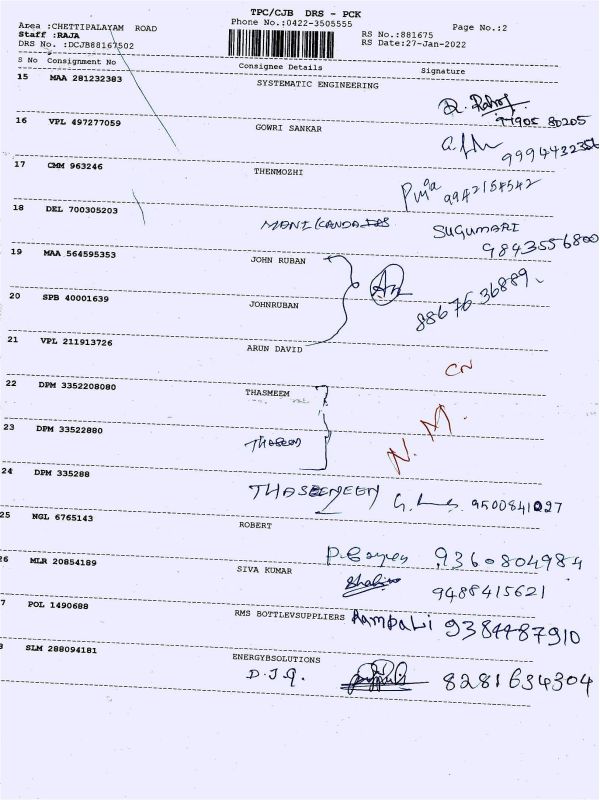 TPC/CJB DRS - PCK
Area :CHETTIPALAYAM ROAD Phone No.:0422-3505555 Page No.:2
Staff :RAJA RS No.:881675
DRS No. :DCJB88167502 RS Date:27-Jan-2022
S No Consignment No Consignee Details Signature
15 MAA 281232383 SYSTEMATIC ENGINEERING
99905 80205
16 VPL 497277059 GOWRI SANKAR
9994432356
17 CMM 963246 THENMOZHI
9942154542
18 DEL 700305203 MANIKANDAN SUGUMARI
9843556800
19 MAA 564595353 JOHN RUBAN
8867636889
20 SPB 40001639 JOHNRUBAN
21 VPL 211913726 ARUN DAVID
CN
22 DPM 3352208080 THASMEEM
N. M.
23 DPM 33522880
24 DPM 335288 THASEEMEEN 9500841027
25 NGL 6765143 ROBERT
9360804984
26 MLR 20854189 SIVA KUMAR
9488415621
7 POL 1490688 RMS BOTTLEVSUPPLIERS RAMPALI 9384487910
8 SLM 288094181 ENERGYBSOLUTIONS
D.J.Q. 8281634304